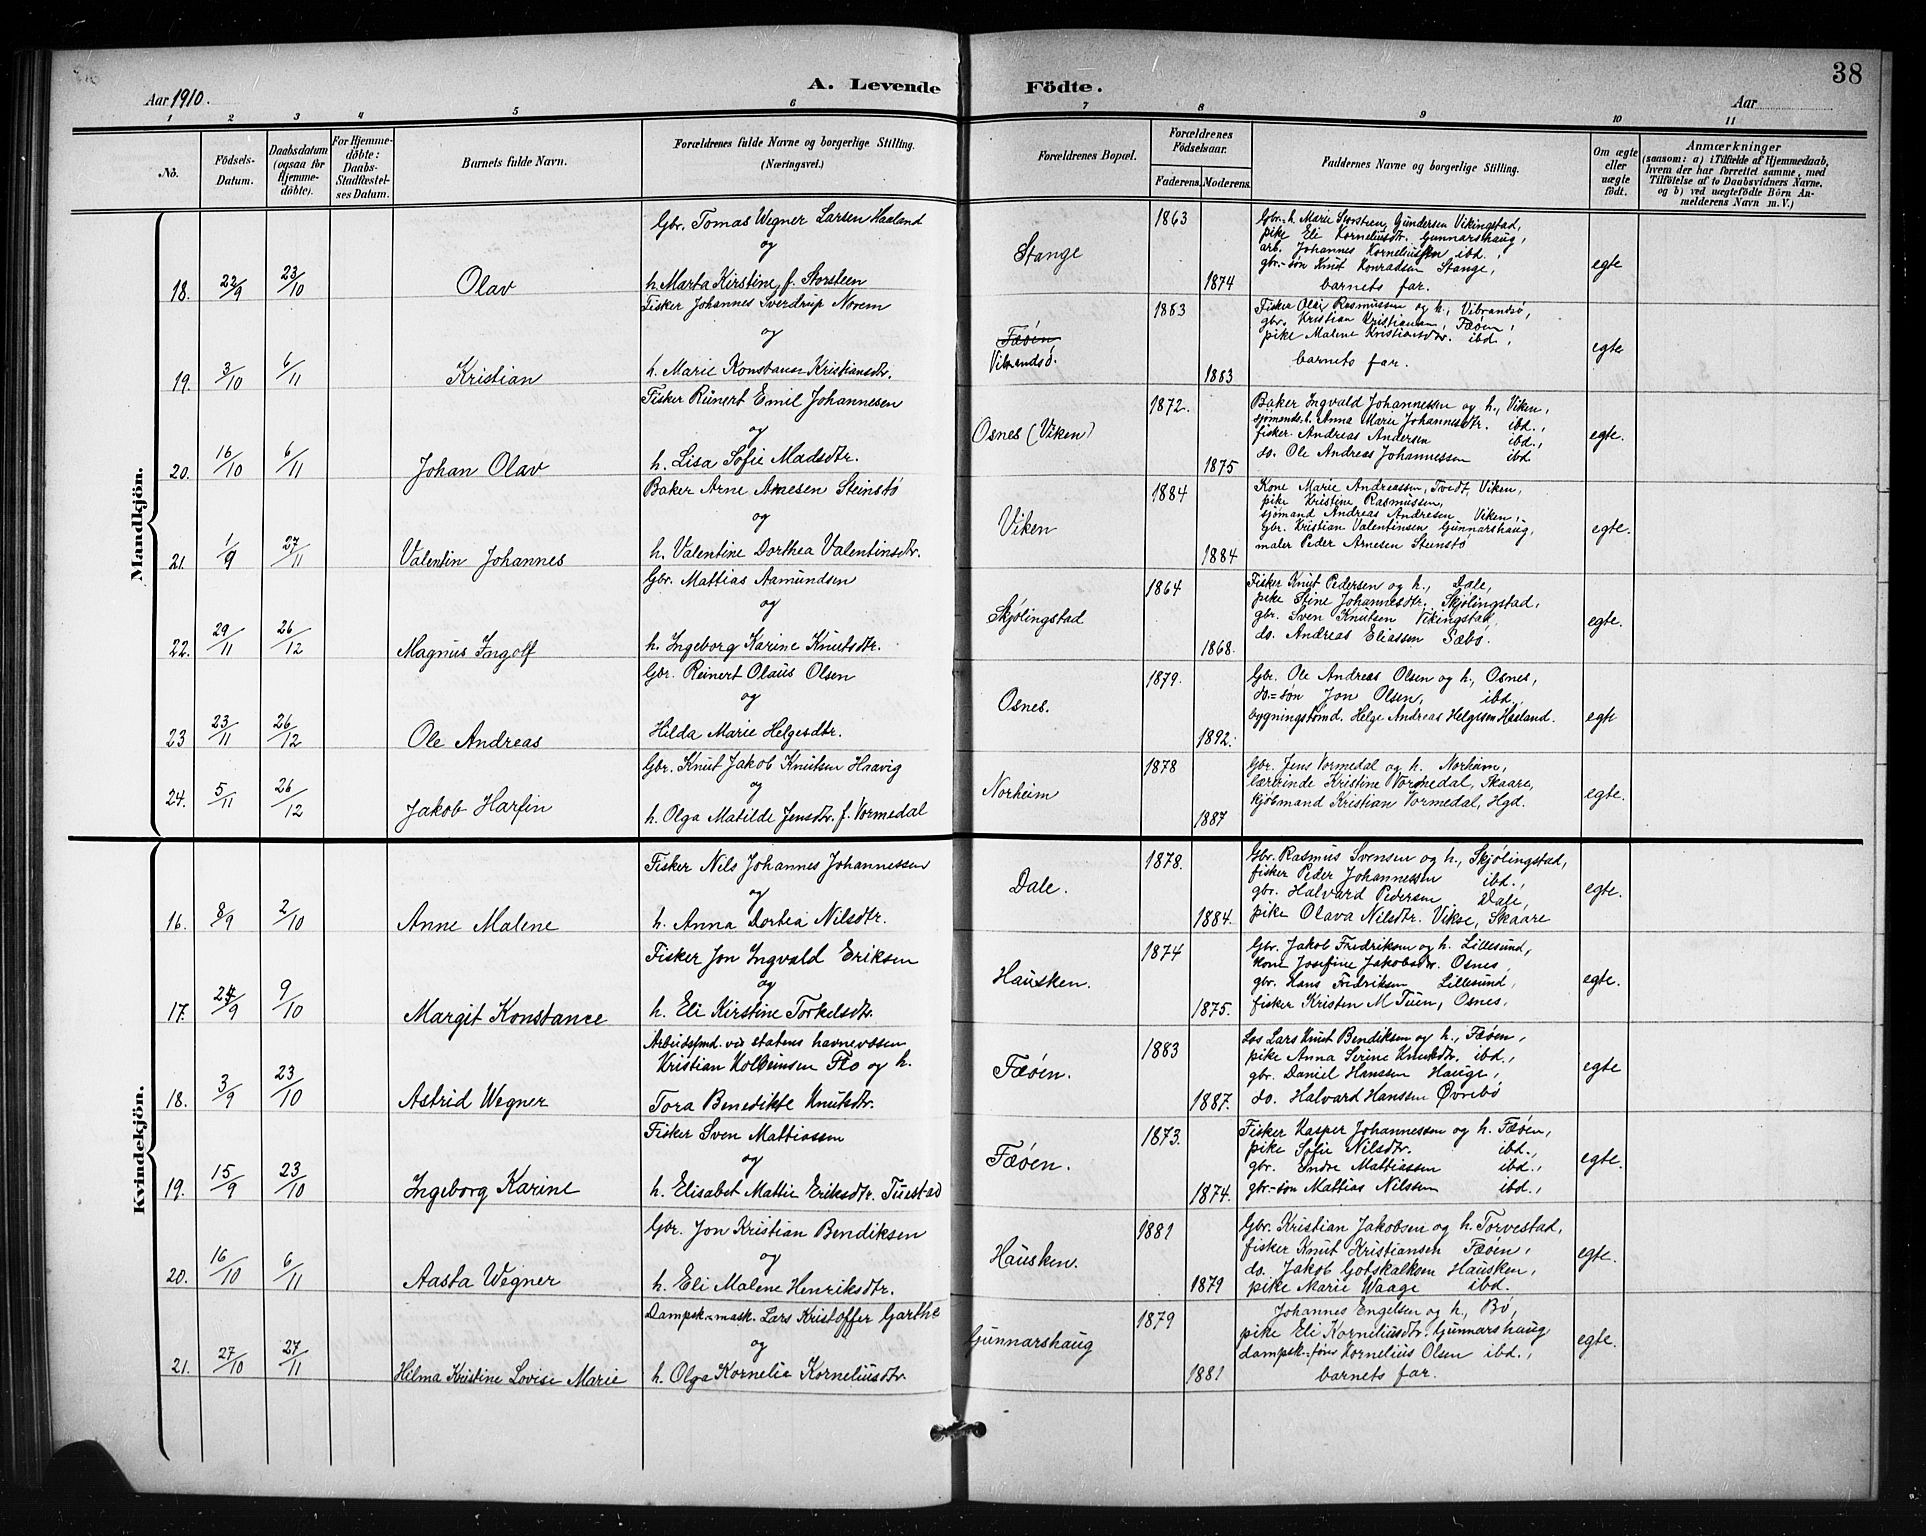 38
Aar 1910.
A. Levende Födte.
Aar
1 2 3 4 5 6 7 8 9 10 11
No.
Födsels-Datum.
Daabsdatum (ogsaa for Hjemmedöbte).
For Hjemmedöbte: Daabs-Stadfæstelses Datum.
Barnets fulde Navn.
Forældrenes fulde Navne og borgerlige Stilling. (Næringsvei.)
Forældrenes Bopæl.
Forældrenes Födselsaar.
Faderens. Moderens.
Faddernes Navne og borgerlige Stilling.
Om ægte eller uægte födt.
Anmærkninger
(saasom: a) i Tilfælde af Hjemmedaab, hvem der har forrettet samme, med Tilföielse af to Daabsvidners Navne, og b) ved uægtefödte Börn Anmelderens Navn m. V.)
Mandkjön.
18. 22/9 23/10 Olav
Gbr. Tomas Wegner Larsen Haaland
og
h. Marta Kirstine, f. Storsteen
Stange 1863 1874
Gbr. h. Marie Storsteen Gundersen Vikingstad,
pike Eli Korneliusdtr. Gunnarshaug,
arb. Johannes Korneliussen ibd.,
gbr.-søn Knut Konradsen Stange,
barnets far.
egte
19. 3/10 6/11 Kristian
Fisker Johannes Sverdrup Norem
og
h. Marie Konstanse Kristiansdtr.
Fæøen
Vibrandsø. 1883 1883
Fisker Olai Rasmussen og h., Vibrandsø,
gbr. Kristian Kristiansen, Fæøen,
pike Malene Kristiansdtr. ibd.,
barnets far.
egte
20. 16/10 6/11 Johan Olav
Fisker Reinert Emil Johannesen
og
h. Lisa Sofie Madsdtr.
Osnes (Viken) 1872. 1875
Baker Ingvald Johannessen og h., Viken,
sjømands h. Anna Marie Johannesdtr. ibd.,
fisker Andreas Andersen ibd.,
do. Ole Andreas Johannessen ibd
egte.
21. 1/9 27/11 Valentin Johannes
Baker Arne Arnesen Steinstø
og
h. Valentine Dorthea Valentinsdtr.
Viken 1884 1884
Kone Marie Andreassen, Tvedt, Viken,
pike Kristine Rasmussen,
sjømand Andreas Andresen Viken,
Gbr. Kristian Valentinsen Gunnarshaug,
maler Peder Arnesen Steinstø
egte.
22. 29/11 26/12 Magnus Ingolf
Gbr. Mattias Aamundsen
og
h. Ingeborg Karine Knutsdtr.
Skjølingstad 1864 1868.
Fisker Knut Pedersen og h., Dale,
pike Stine Johannesdtr. Skjølingstad,
gbr. Sven Knutsen Vikingstad,
do. Andreas Eliassen Sæbø.
egte.
23 23/11 26/12 Ole Andreas
Gbr. Reinert Olaus Olsen
og
Hilda Marie Helgesdtr.
Osnes. 1879. 1892.
Gbr. Ole Andreas Olsen og h., Osnes,
do.-søn Jon Olsen, ibd,
bygningstømd. Helge Andreas Helgesen Haaland.
egte
24. 5/11 26/12 Jakob Harfin
Gbr. Knut Jakob Knutsen Haavig
og
h. Olga Matilde Jensdtr. f. Vormedal
Norheim 1878 1887
Gbr. Jens Vormedal og h. Norheim,
lærerinde Kristine Vormedal, Skaare,
kjøbmand Kristian Vormedal, Hgd.
egte.
Kvindekjön.
16. 8/9 2/10 Anne Malene
Fisker Nils Johannes Johannessen
og
h. Anna Dortea Nilsdtr.
Dale. 1878. 1884.
Gbr. Rasmus Svensen og h., Skjølingstad,
fisker Peder Johannessen ibd.,
gbr. Halvard Pedersen Dale,
pike Olava Nilsdtr. Vikse, Skaare
egte.
17. 24/9 9/10 Margit Konstance
Fisker Jon Ingvald Eriksen
og
h. Eli Kirstine Torkelsdtr.
Hausken. 1874 1875.
Gbr. Jakob Fredriksen og h. Lillesund,
kone Josefine Jakobsdtr. Osnes,
gbr. Hans Fredriksen Lillesund,
fisker Kristen M Tuen, Osnes,
egte.
18. 3/9 23/10 Astrid Wegner
Arbeidsfmd. ved statens havnevæsen
Kristian Kolbeinsen Flo og h.
Tora Benedikte Knutsdtr.
Fæøen. 1883 1887.
Los Lars Knut Bendiksen og h., Fæøen,
pike Anna Serine Knutsdtr. ibd.,
gbr. Daniel Hanssen Hauge,
do. Halvard Hanssen Øvrebø
egte
19. 15/9 23/10 Ingeborg Karine
Fisker Sven Mattiassen
og
h. Elisabet Mattie Eriksdtr. Tuestad
Fæøen. 1873. 1874.
Fisker Kasper Johannessen og h. Fæøen,
pike Sofie Nilsdtr. ibd.,
gbr. Endre Mattiassen ibd.,
gbr.-søn Mattias Nilssen ibd.,
egte.
20. 16/10 6/11 Aasta Wegner
Gbr. Jon Kristian Bendiksen
og
h. Eli Malene Henriksdtr.
Hausken. 1881 1879
Gbr. Kristian Jakobsen og h. Torvestad,
fisker Knut Kristiansen Fæøen,
do. Jakob Gotskalksen Hausken,
pike Marie Waage ibd.
egte.
21. 27/10 27/11 Hilma Kristine Lovise Marie
Dampsk.-mask. Lars Kristoffer Garthe
og
h. Olga Kornelia Korneliusdtr.
Gunnarshaug 1879 1881
Johannes Engelsen og h., Bø,
pike Eli Korneliusdtr. Gunnarshaug
dampsk.-føres Kornelius Olsen ibd.,
barnets far.
egte.